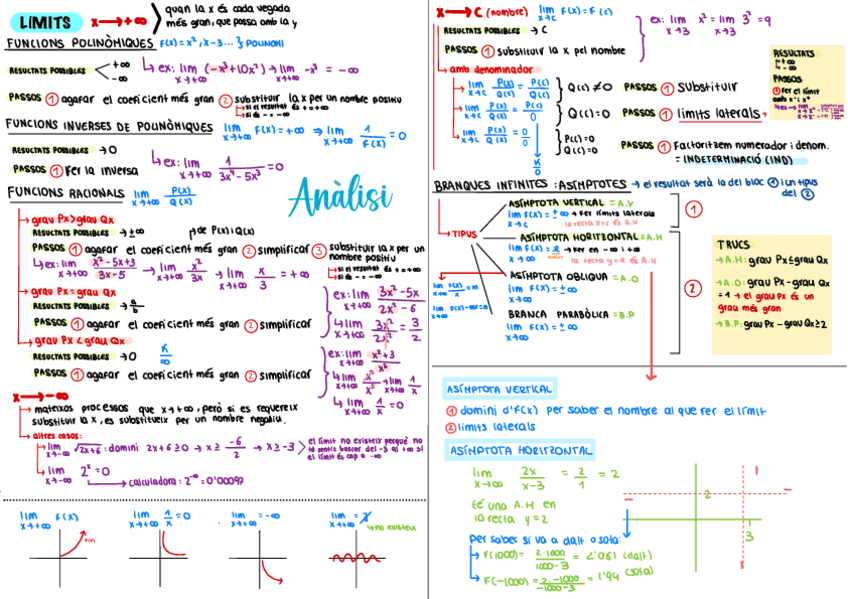 LÍMITS x→+∞ quan la x és cada vegada
més gran, que passa amb la y
FUNCIONS POLINÒMIQUES F(x)=x², x-3... } POLINOMI
RESULTATS POSSIBLES +∞
-∞
ex: lim x→+∞ (-x³+10x²) → lim x→+∞ -x³ = -∞
PASSOS ① agafar el coeficient més gran ② substituir la x per un nombre positiu
si el resultat és + = +∞
si és - = -∞
FUNCIONS INVERSES DE POLINÒMIQUES lim x→+∞ F(x) = +∞ ⇒ lim x→+∞ 1/F(x) = 0
RESULTATS POSSIBLES → 0
PASSOS ① Fer la inversa
ex: lim x→+∞ 1/(3x⁴-5x³) = 0
FUNCIONS RACIONALS lim x→+∞ P(x)/Q(x)
Anàlisi
grau Px > grau Qx
RESULTATS POSSIBLES → ±∞ de P(x) i Q(x)
PASSOS ① agafar el coeficient més gran ② simplificar ③ substituir la x per un
nombre positiu
si el resultat és + = +∞
si és - = -∞
ex: lim x→+∞ (x²-5x+3)/(3x-5) → lim x→+∞ x²/3x → lim x→+∞ x/3 = +∞
grau Px = grau Qx
RESULTATS POSSIBLES → a/b
PASSOS ① agafar el coeficient més gran ② simplificar
ex: lim x→+∞ (3x²-5x)/(2x²-6)
lim x→+∞ 3x²/2x² = 3/2
grau Px < grau Qx
RESULTATS POSSIBLES → 0 K/∞
PASSOS ① agafar el coeficient més gran ② simplificar
lim x→+∞ 1/x = 0
x→-∞
mateixos processos que x→+∞, però si es requereix
substituir la x, es substitueix per un nombre negatiu.
altres casos:
lim x→-∞ √2x+6 : domini 2x+6≥0 → x ≥ -6/2 → x≥-3
el límit no existeix perquè no
té sentit buscar del -3 al +∞ si
el límit és cap a -∞
lim x→-∞ 2ˣ = 0
calculadora: 2
lim x→+∞ F(x)
lim x→+∞ 1/x = 0
lim x→+∞ = -∞
lim x→+∞ = ∄
no existeix
x→C (nombre) lim x→c F(x) = F(c)
RESULTATS POSSIBLES → C
PASSOS ① substituir la x pel nombre
ex: lim x→3 x² = lim x→3 3² = 9
amb denominador
lim x→c P(x)/Q(x) = P(c)/Q(c) } Q(c)≠0 PASSOS ① Substituir
lim x→c P(x)/Q(x) = P(c)/0 } Q(c)=0 PASSOS ① límits laterals
lim x→c P(x)/Q(x) = 0/0 } P(c)=0
Q(c)=0
PASSOS ① Factoritzem numerador i denom.
= INDETERMINACIÓ (IND)
K/0
RESULTATS
+∞
-∞
PASSOS
① Fer el límit
BRANQUES INFINITES: ASÍMPTOTES → el resultat serà la del bloc ① i un tipus
del ②
TIPUS
ASÍMPTOTA VERTICAL = A.V
lim F(x) = ±∞ → Fer límits laterals
la recta x=c és A.V
①
ASÍMPTOTA HORITZONTAL = A.H
lim F(x) = → Fer en -∞ i ∞
la recta y=ℓ és A.H
ASÍMPTOTA OBLIQUA = A.O
lim x→∞ F(x) = ±∞
BRANCA PARABÒLICA = B.P
lim x→∞ F(x) = ±∞
②
lim x→∞ F(x)/x = m
lim x→∞ F(x)-mx = n
TRUCS
→ A.H: grau Px ≤ grau Qx
→ A.O: grau Px - grau Qx
= 1 → el grau Px és un
grau més gran
→ B.P: grau Px - grau Qx ≥ 2
ASÍMPTOTA VERTICAL
① domini d'F(x) per saber el nombre al que fer el límit
② límits laterals
ASÍMPTOTA HORITZONTAL
lim x→∞ 2x/(x-3) = 2/1 = 2
té una A.H en
la recta y=2
per saber si va a dalt o sota:
F(1000) = 2·1000/(1000-3) = 2'061 (dalt)
F(-1000) = 2·-1000/(-1000-3) = 1'94 (sota)
2
3